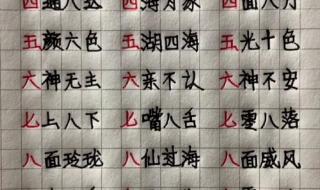 四通八达 四海为家 四面八方
五颜六色 五湖四海 五光十色
六神无主 六亲不认 六神不安
七上八下 七嘴八舌 七零八落
八面玲珑 八仙过海 八面威风